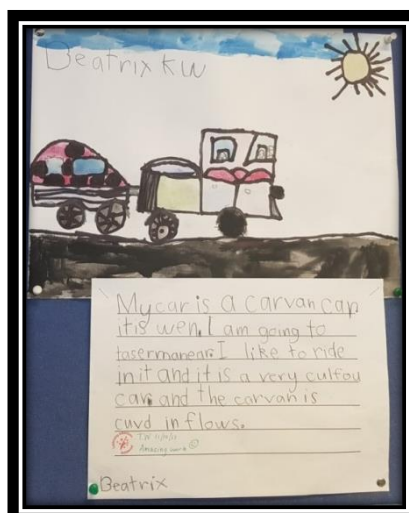 Beatrix KW
My car is a carvan cap
it is wen. I am going to
tasermanear. I like to ride
in it and it is a very culfou
car. and the carvan is
cuvd in flows.
Amazing work
Beatrix